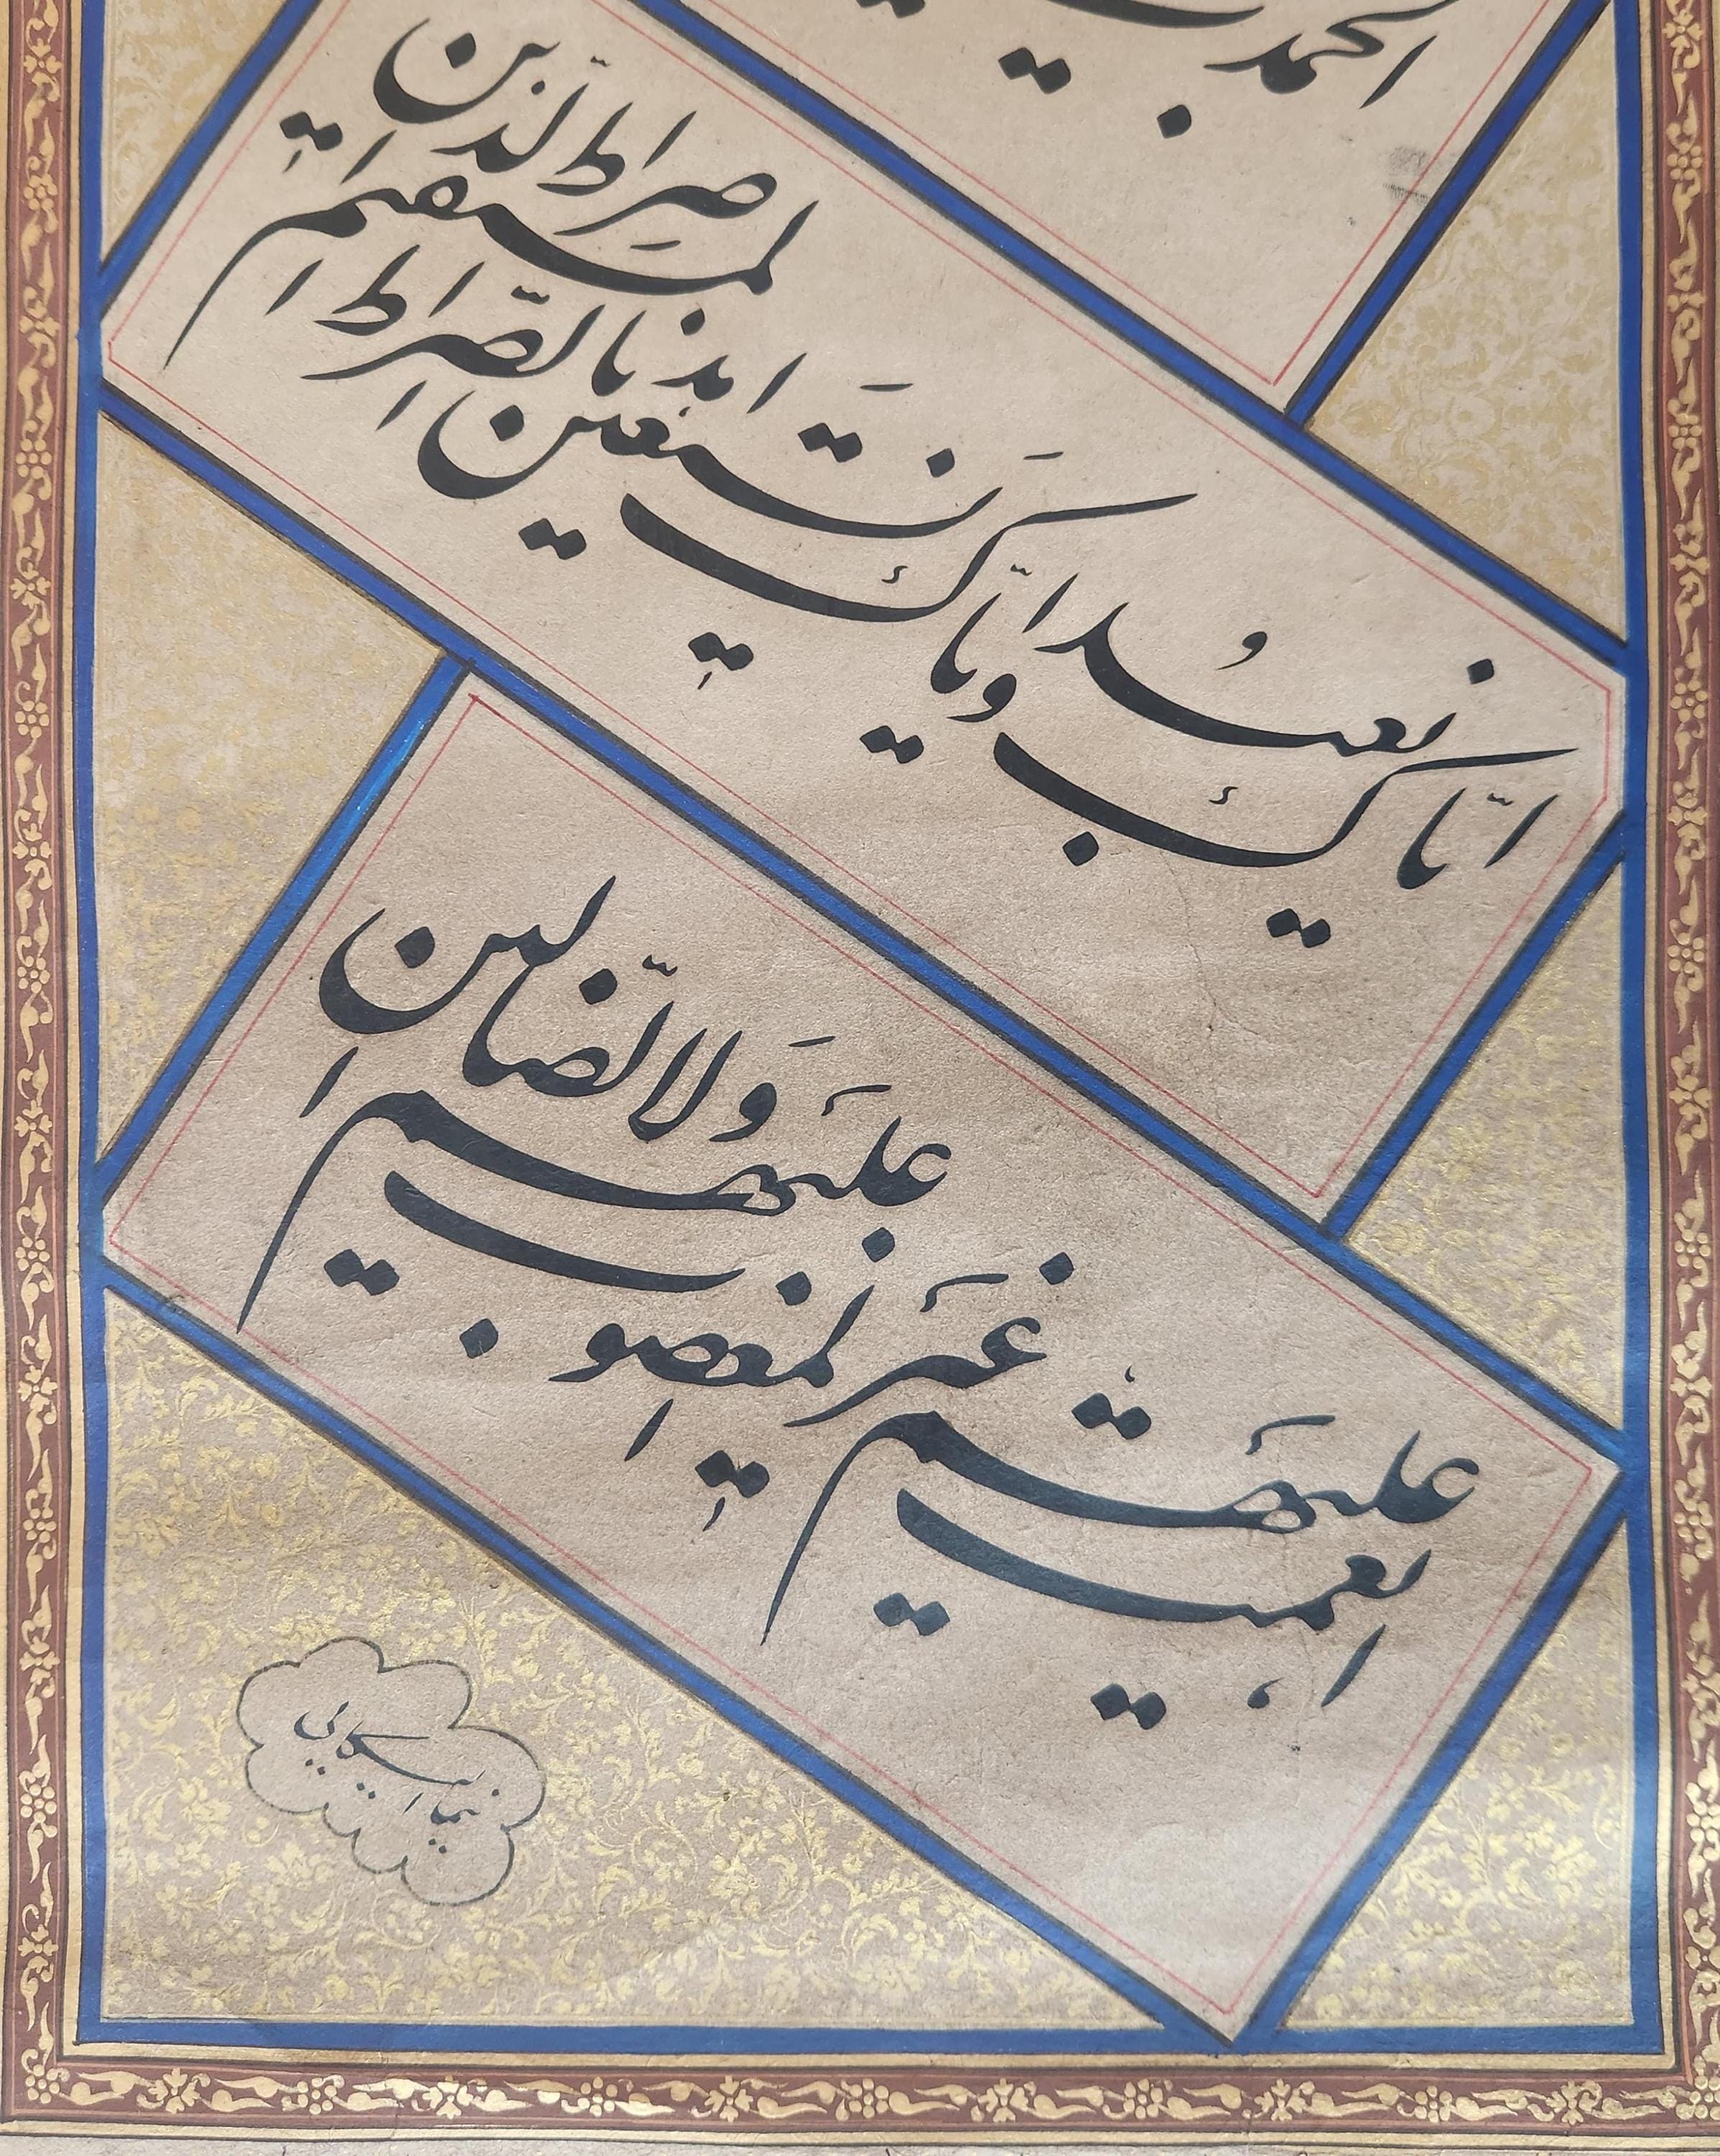 الحمد
ایّاک نعبدُ و ایّاک نستعین
اهدنا الصّراط المستقیم
صراط الّذین
انعمت علیهم
غیر المغضوب علیهم
ولا الضّالین